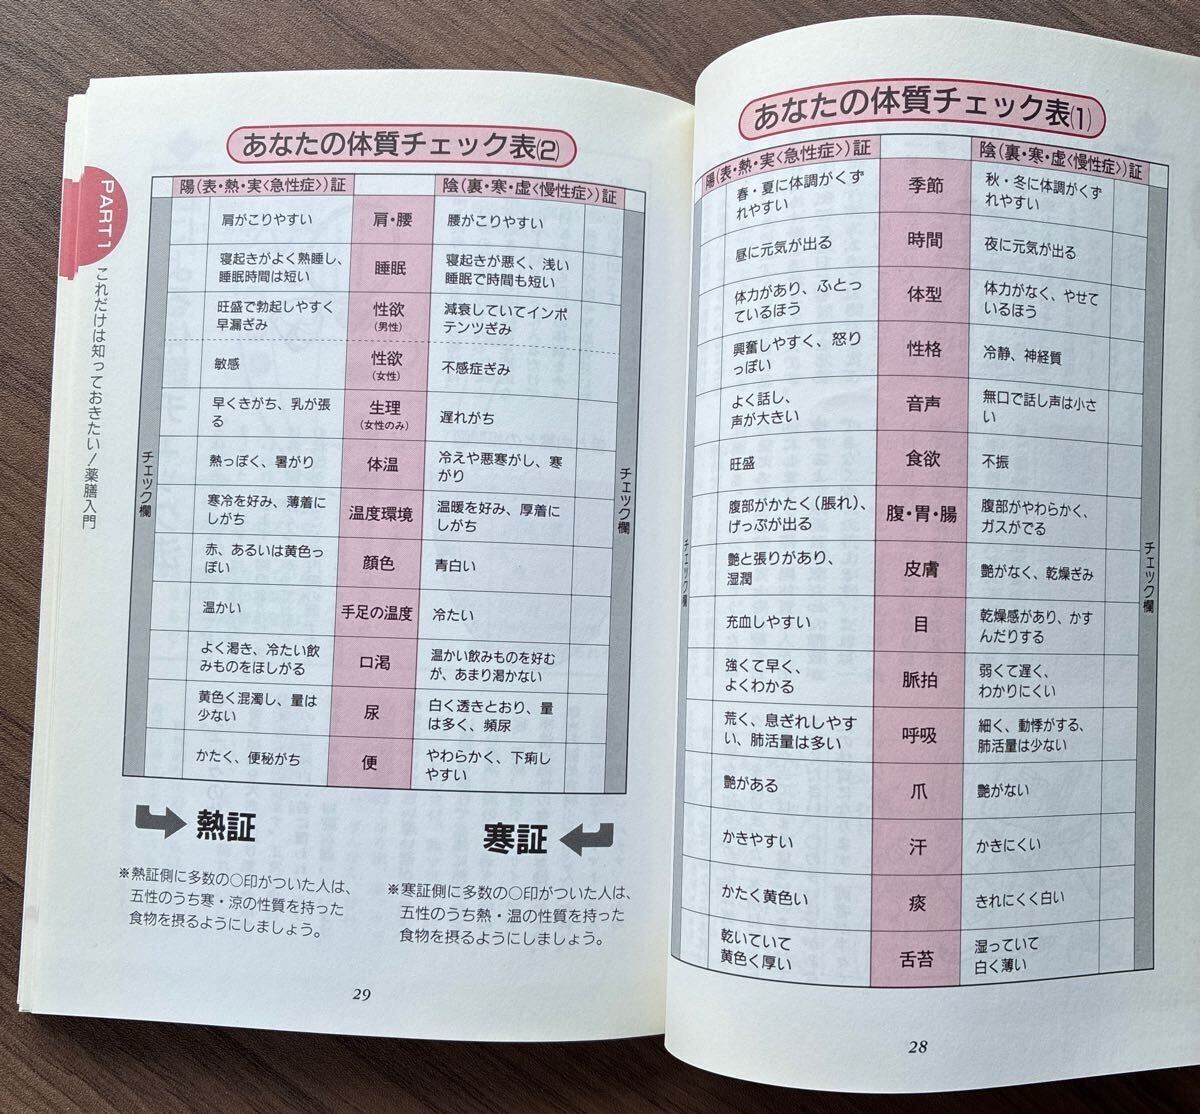 あなたの体質チェック表(1)
陽(表・熱・実〈急性症〉)証 陰(裏・寒・虚〈慢性症〉)証
春・夏に体調がくず
れやすい
季節
秋・冬に体調がくず
れやすい
昼に元気が出る
時間
夜に元気が出る
体力があり、ふとっ
ているほう
体型
体力がなく、やせて
いるほう
興奮しやすく、怒り
っぽい
性格
冷静、神経質
よく話し、
声が大きい
音声
無口で話し声は小さ
い
旺盛
食欲
不振
腹部がかたく(脹れ)、
げっぷが出る
腹・胃・腸
腹部がやわらかく、
ガスがでる
艶と張りがあり、
湿潤
皮膚
艶がなく、乾燥ぎみ
充血しやすい
目
乾燥感があり、かす
んだりする
強くて早く、
よくわかる
脈拍
弱くて遅く、
わかりにくい
荒く、息ぎれしやす
い、肺活量は多い
呼吸
細く、動悸がする、
肺活量は少ない
艶がある
爪
艶がない
かきやすい
汗
かきにくい
かたく黄色い
痰
きれにくく白い
乾いていて
黄色く厚い
舌苔
湿っていて
白く薄い
チェック欄
チェック欄
28
あなたの体質チェック表(2)
陽(表・熱・実〈急性症〉)証 陰(裏・寒・虚〈慢性症〉)証
肩がこりやすい
肩・腰
腰がこりやすい
寝起きがよく熟睡し、
睡眠時間は短い
睡眠
寝起きが悪く、浅い
睡眠で時間も短い
旺盛で勃起しやすく
早漏ぎみ
性欲
(男性)
減衰していてインポ
テンツぎみ
敏感
性欲
(女性)
不感症ぎみ
早くきがち、乳が張
る
生理
(女性のみ)
遅れがち
熱っぽく、暑がり
体温
冷えや悪寒がし、寒
がり
寒冷を好み、薄着に
しがち
温度環境
温暖を好み、厚着に
しがち
赤、あるいは黄色っ
ぽい
顔色
青白い
温かい
手足の温度
冷たい
よく渇き、冷たい飲
みものをほしがる
口渇
温かい飲みものを好む
が、あまり渇かない
黄色く混濁し、量は
少ない
尿
白く透きとおり、量
は多く、頻尿
かたく、便秘がち
便
やわらかく、下痢し
やすい
チェック欄
チェック欄
熱証
寒証
※熱証側に多数の○印がついた人は、
五性のうち寒・涼の性質を持った
食物を摂るようにしましょう。
※寒証側に多数の○印がついた人は、
五性のうち熱・温の性質を持った
食物を摂るようにしましょう。
PART1
これだけは知っておきたい!薬膳入門
29